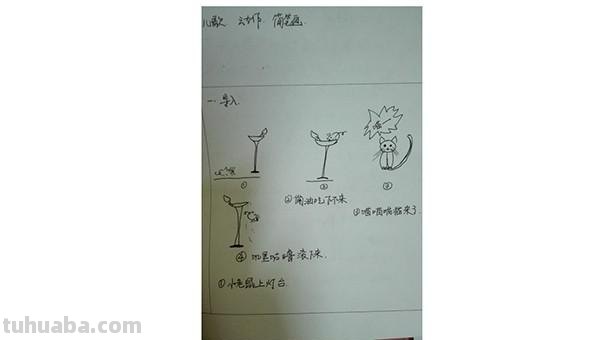 儿歌 动作 简笔画
一. 导入
喵
① ② ③
②偷油吃下不来
③喵喵喵猫来了
④ 叽里咕噜滚下来.
①小老鼠上灯台.
tuhuaba.com